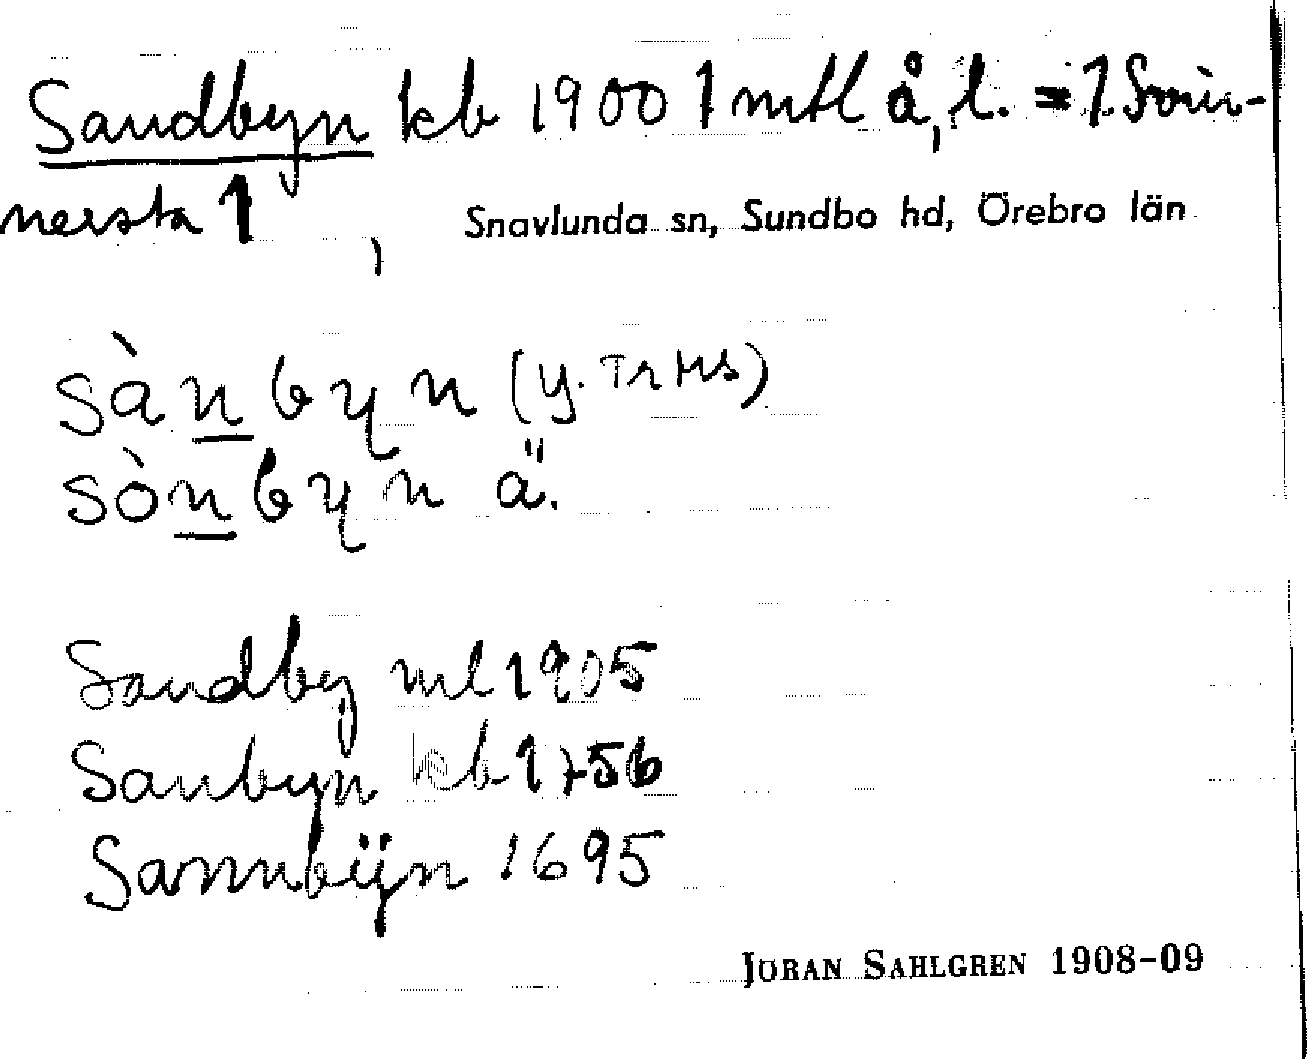 Sandbyn kb 1900 1 mtl å, l. = 1 Söin-
nersta 1, Snavlunda sn, Sundbo hd, Örebro län
sànbyn (y. Tr Hs)
sònbyn ä.
Sandby ml 1905
Sanbyn kb 1756
Sannbÿn 1695
JÖRAN SAHLGREN 1908-09